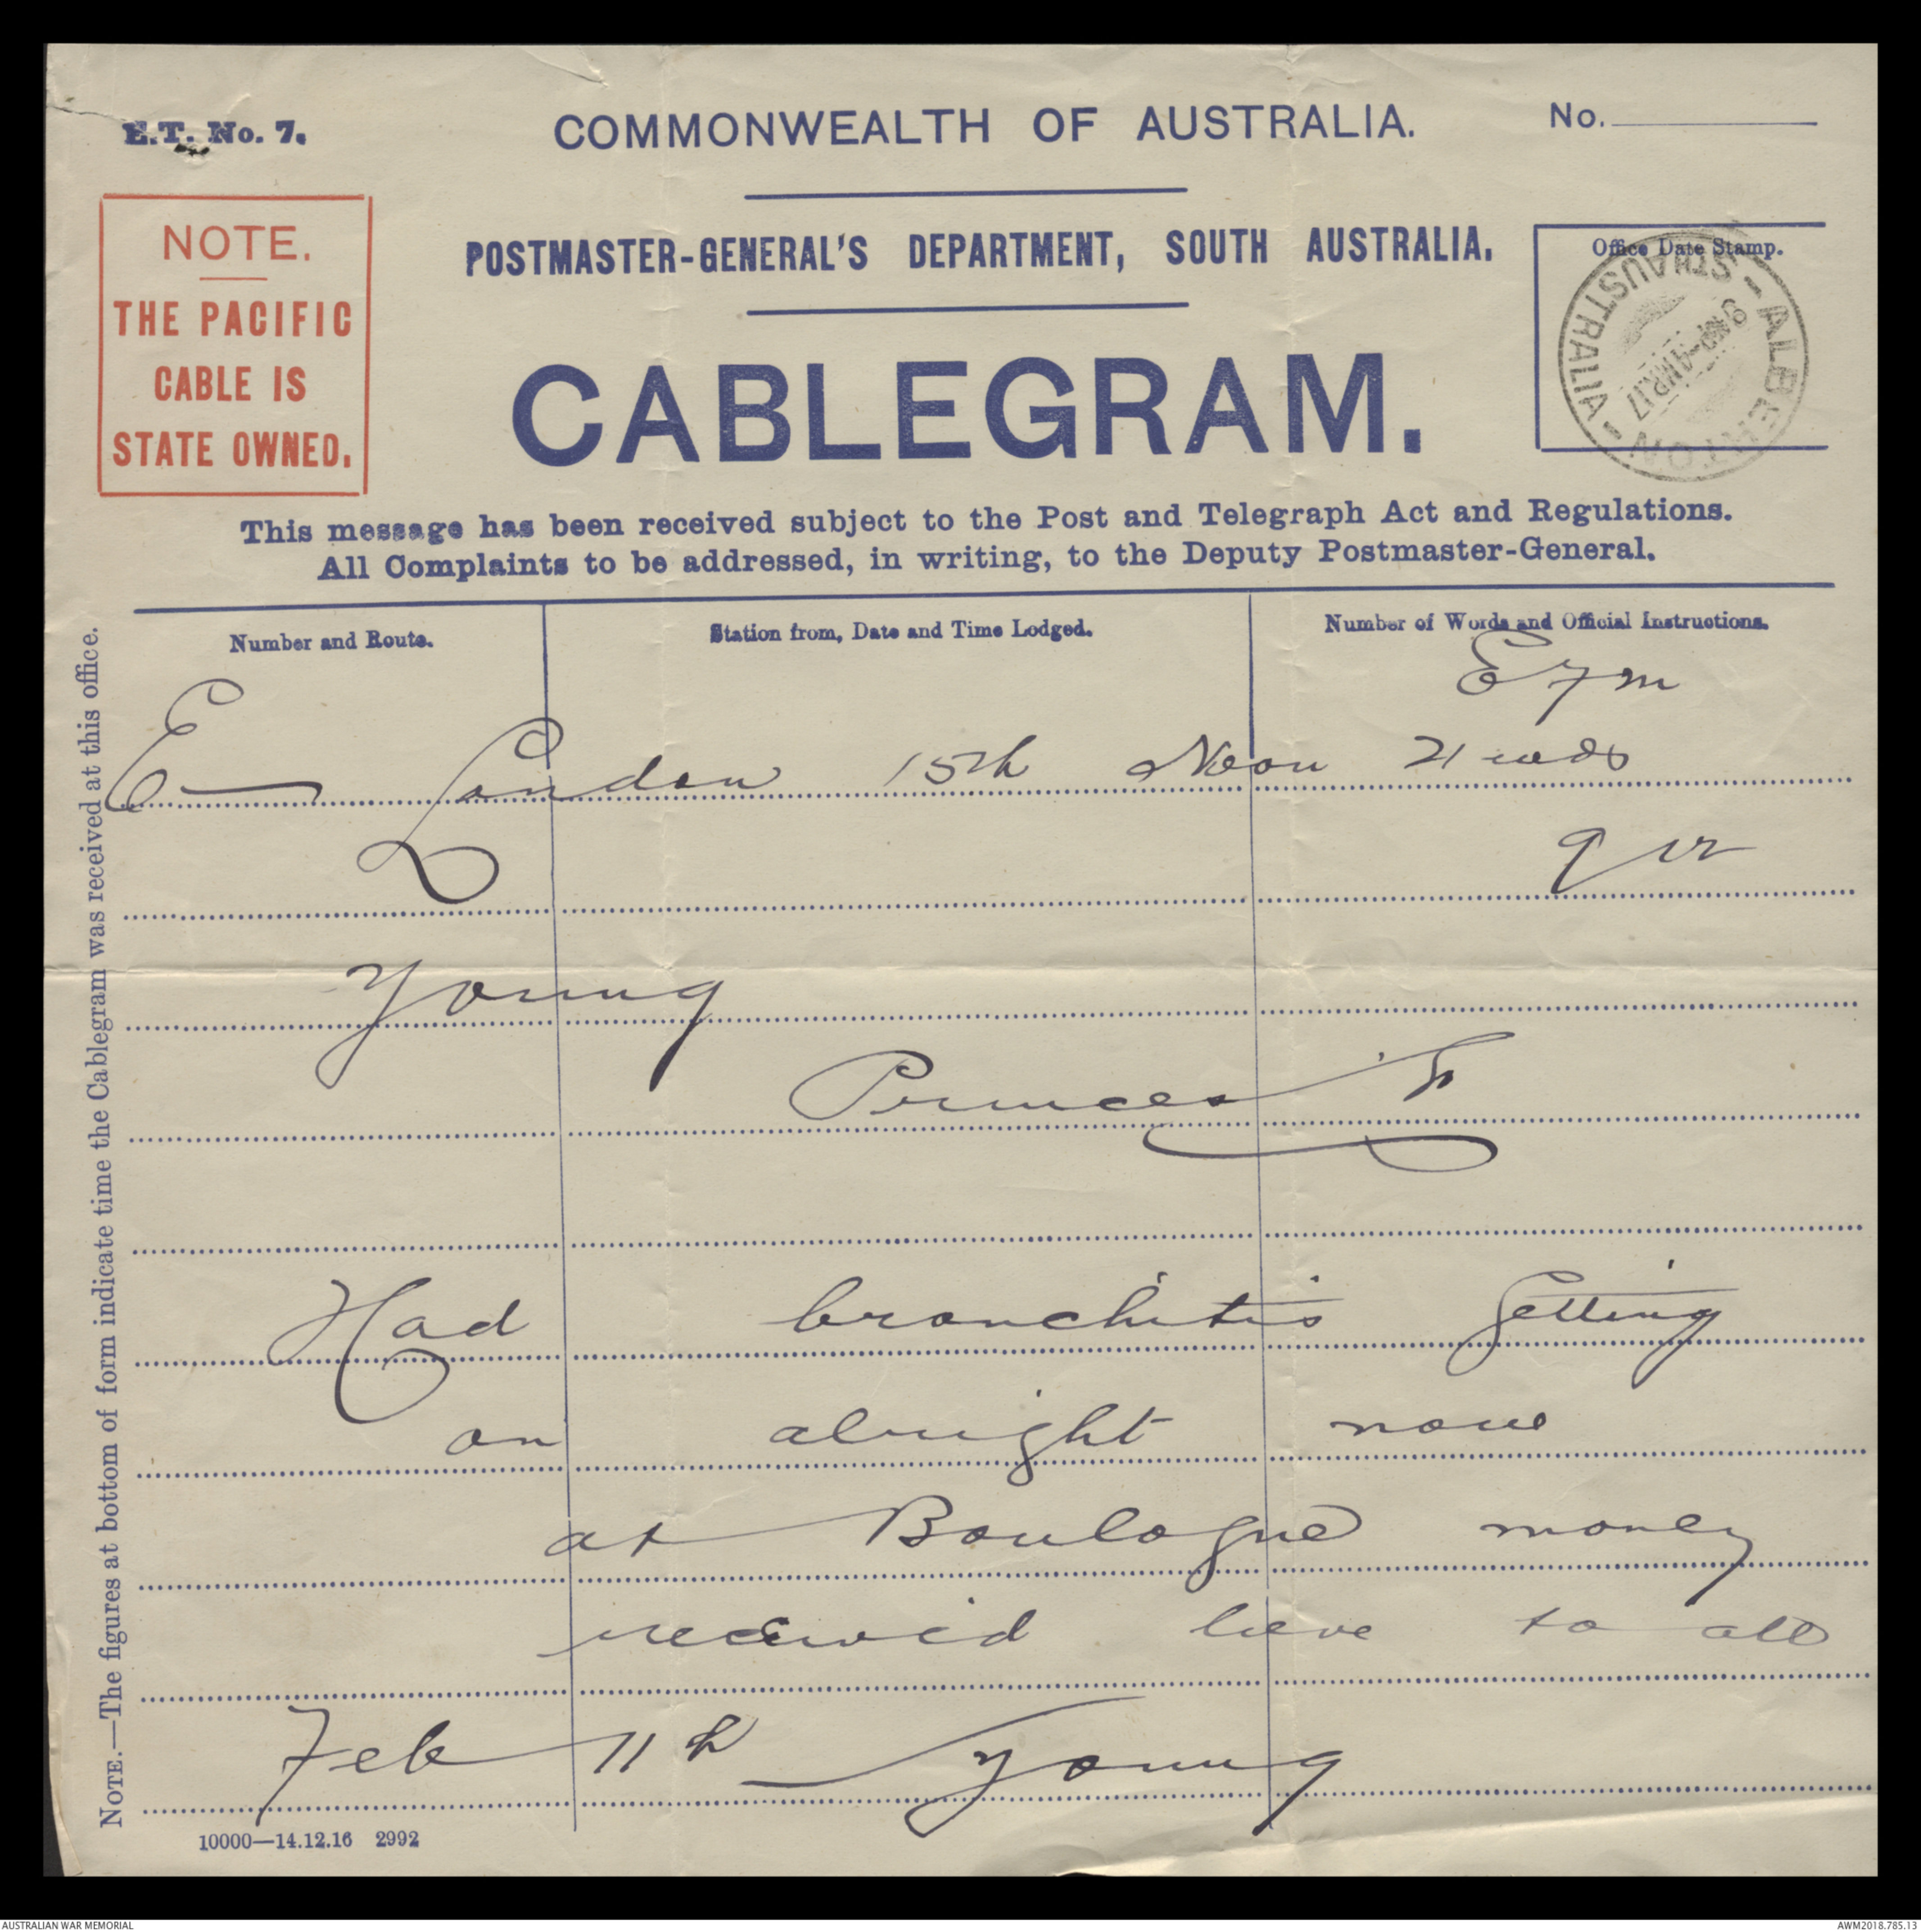 E.T. No. 7.
COMMONWEALTH OF AUSTRALIA.
No.
NOTE.
THE PACIFIC
CABLE IS
STATE OWNED.
POSTMASTER-GENERAL'S DEPARTMENT, SOUTH AUSTRALIA.
CABLEGRAM.
Office Date Stamp.
ALBERTON
STH AUSTRALIA
MR 17
This message has been received subject to the Post and Telegraph Act and Regulations.
All Complaints to be addressed, in writing, to the Deputy Postmaster-General.
Number and Route.
Station from, Date and Time Lodged.
Number of Words and Official Instructions.
Efm
E London 15th Noon 21 wds
Young
Princes St
Had bronchitis getting
on alright now
at Boulogne money
received love to all
Feb 11th Young
10000—14.12.16 2992
NOTE.—The figures at bottom of form indicate time the Cablegram was received at this office.
AUSTRALIAN WAR MEMORIAL
AWM2018.785.13